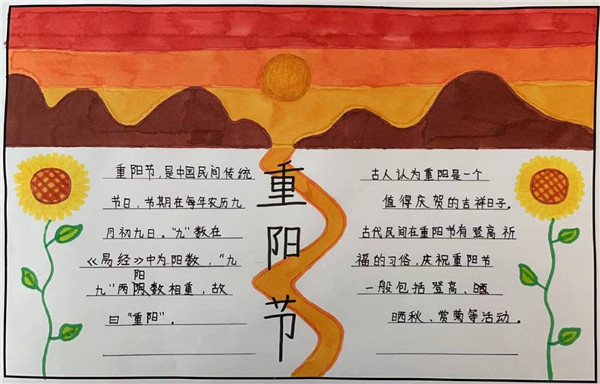 重阳节
重阳节,是中国民间传统
节日,节期在每年农历九
月初九日。"九"数在
《易经》中为阳数,"九
阳
九"两数相重,故
曰"重阳"。
古人认为重阳是一个
值得庆贺的吉祥日子。
古代民间在重阳节有登高祈
福的习俗,庆祝重阳节
一般包括登高、
晒秋、赏菊等活动。